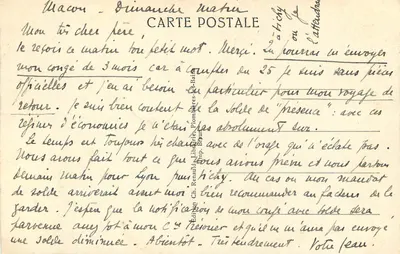 Macon - Dimanche matin
CARTE POSTALE
à Vichy
où je
l'attendrai
Mon très cher père,
Je reçois ce matin ton petit mot. Merci. Tu pourras m'envoyer
mon congé de 3 mois car à compter du 25 je suis sans pièces
officielles et j'en ai besoin en particulier pour mon voyage de
retour. Je suis bien content de la solde de "présence" : avec ces
d'économies je n'étais pas absolument sur.
Le temps est toujours très chaud avec de l'orage qui n'éclate pas.
Nous avons fait tout ce que nous avions prévu et nous partons
demain matin pour Lyon puis Vichy. Au cas où mon mandat
de solde arriverait avant moi, bien recommander au facteur de le
garder. J'espère que la notification de mon congé avec solde sera
parvenue aussitôt à mon Cre Trésorier et qu'il ne m'aura pas envoyé
une solde diminuée. A bientôt. Très tendrement. Votre Jean.